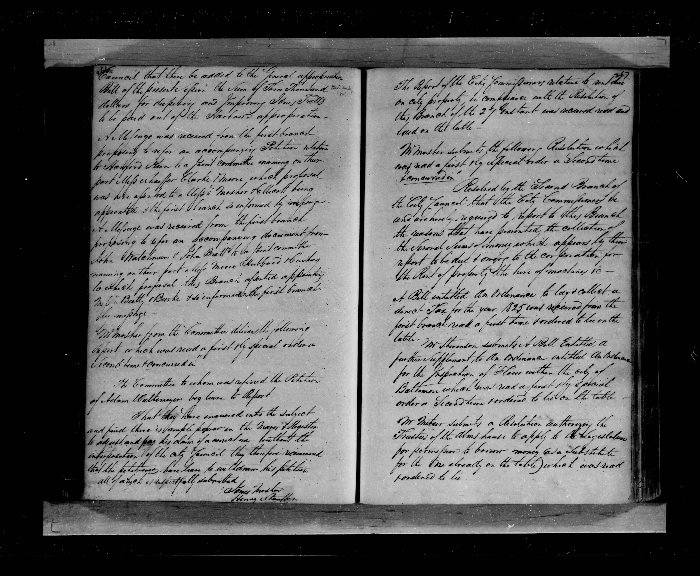 Council that there be added to the General appropriation
Bill of the present year the Sum of Two Thousand
dollars for deepening and improving Jones Falls
to be paid out of the Harbour appropriation
A Message was received from the first branch
proposing to refer an accompanying Petition relative
to Harford Run to a Joint Committee naming on their
part Messrs Schaeffer Clarke & Moore which proposal
was
referred to & Messrs Mosher & Elliott being
appointed & the first branch so informed by message
A Message was received from the first branch
proposing to refer an accompanying document from
John Waterman & John Bratt to a Joint Committee
naming on their part Messrs Moore Hubbard &
to which proposal this Branch assented appointing
Messrs Beatty & Bourke & so informed the first branch
by message
Mr Mosher from the Committee delivered the following
report which was read a first & by special order a
Second time & concurred in
The Committee to whom was referred the Petition
of Adam Waltemeyer beg leave to Report
That they have enquired into the subject
and find there is ample power in the Mayor & Register
to adjust and pay his claim if a
one without the
interposition of the City Council they therefore recommend
that the petitioner have leave to withdraw his petition
all of which is respectfully submitted
James Mosher
Henry
The Report of the City Commissioners relative to
on City property in compliance with the Resolution of
this Branch of the 27 Instant was received read and
laid on the table
Mr Mosher submits the following Resolution which
was read a first & by special order a Second time
& concurred in
Resolved by the Second Branch of
the City Council that the City Commissioners be
and are hereby required to report to this Branch
the reasons that have prevented the collection of
the Several Sums of money which appears by their
report to be due & owing to the corporation for
the Rent of property & the hire of machines &c
A Bill entitled An Ordinance to lay & collect a
direct Tax for the year 1825 was received from the
first branch read a first time & ordered to lie on the
table
Mr Steuart submits A Bill Entitled A
further supplement to An Ordinance entitled An Ordinance
for the Inspection of Flour within the city of
Baltimore which was read a first & by special
order a Second time & ordered to lie on the table
Mr
submits a Resolution authorizing the
Trustees of the Alms house to apply to the Legislature
for permission to borrow money (as a Substitute
for the One already on the table) which was read
& ordered to lie